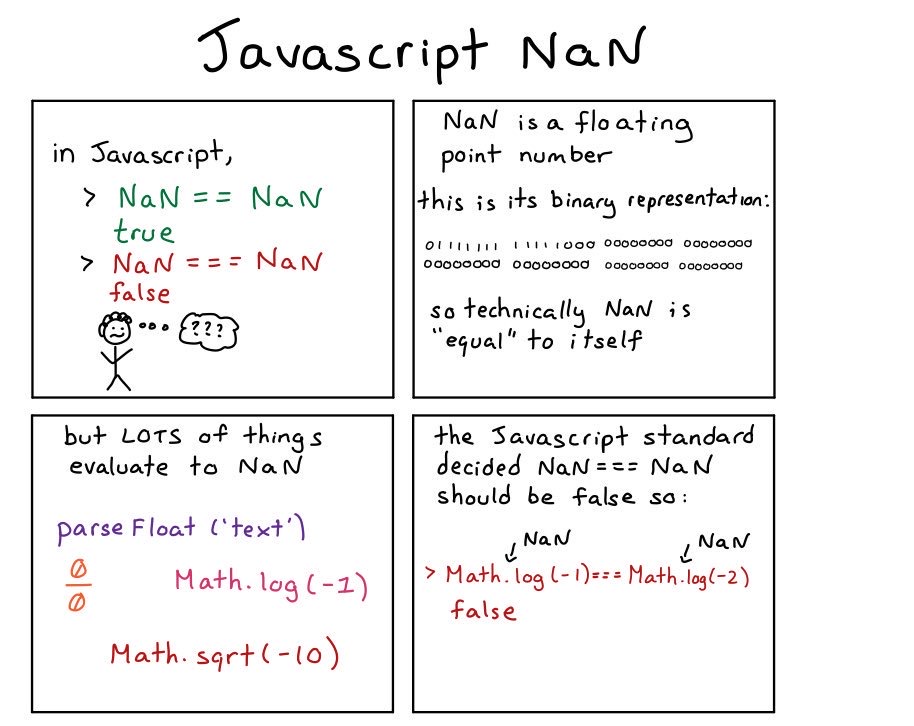 Javascript NaN
in Javascript,
> NaN == NaN
true
> NaN === NaN
false
???
NaN is a floating
point number
this is its binary representation:
01111111 11111000 00000000 00000000
00000000 00000000 00000000 00000000
so technically NaN is
"equal" to itself
but LOTS of things
evaluate to NaN
parseFloat ('text')
0
0
Math.log(-1)
Math.sqrt(-10)
the Javascript standard
decided NaN === NaN
should be false so:
NaN NaN
> Math.log(-1)=== Math.log(-2)
false